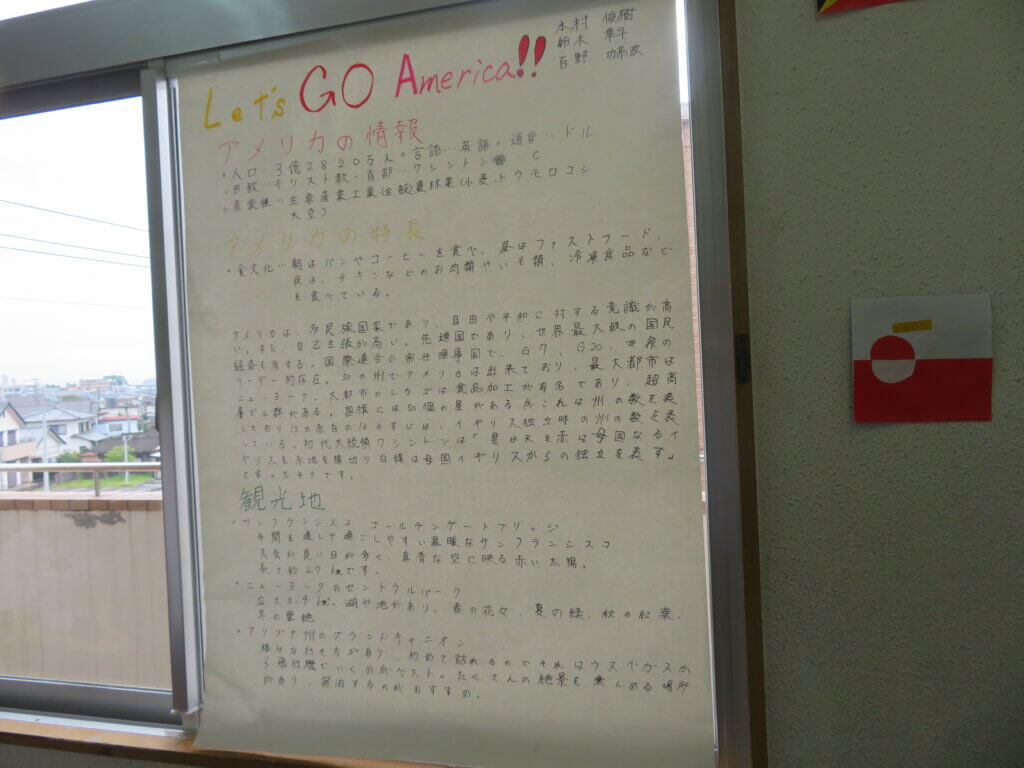 木村 俊樹
鈴木 隼斗
Let's GO America!!
アメリカの情報
。人口…3億2820万人。言語…英語。通貨…ドル
。宗教…キリスト教・首都…ワシントン・C
。産業…主要産業、工業(全般)農林業(小麦、トウモロコシ
大豆)
アメリカの特長
。食文化…朝はパンやコーヒーを食べ、昼はファストフード、
夜は、チキンなどのお肉類やいも類、冷凍食品など
を食べている。
アメリカは、多民族国家であり、自由や平和に対する意識が高
い。また、自己主張が高い。先進国であり、世界最大級の国民
経済を有する。国際連合の常任理事国で、G7、G20、世界の
リーダー的存在。50の州でアメリカは出来ており、最大都市は
ニューヨーク。大都市のシカゴは食品加工が有名であり、超高
層ビル群がある。国旗には50個の星があるがこれは州の数を表
しており13の赤白の13のすじは、イギリス独立時の州の数を表
している。初代大統領ワシントンは「星は天を赤は母国なるイ
ギリスを赤地を横切り白線は母国イギリスからの独立を表す」
と言ったそうです。
観光地
。サンフランシスコ ゴールデンゲートブリッジ
年間を通して過ごしやすい温暖なサンフランシスコ
天気が良い日が多く、真青な空に映る赤い太陽。
長さ約2.7kmです。
。ニューヨークのセントラルパーク
広さ3.4km²、湖や池があり、春の花々、夏の緑、秋の紅葉、
冬の雪絶
。アリゾナ州のグランドキャニオン
様々な行き方があり、初めて訪れるのでそれはラスベガスか
ら飛行機でいくのがベスト。たくさんの絶景を楽しめる場所
があり、宿泊するのがおすすめ。